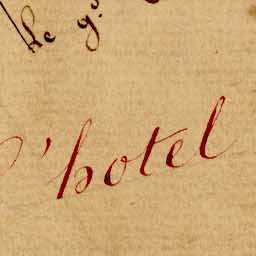 le g.
'hotel